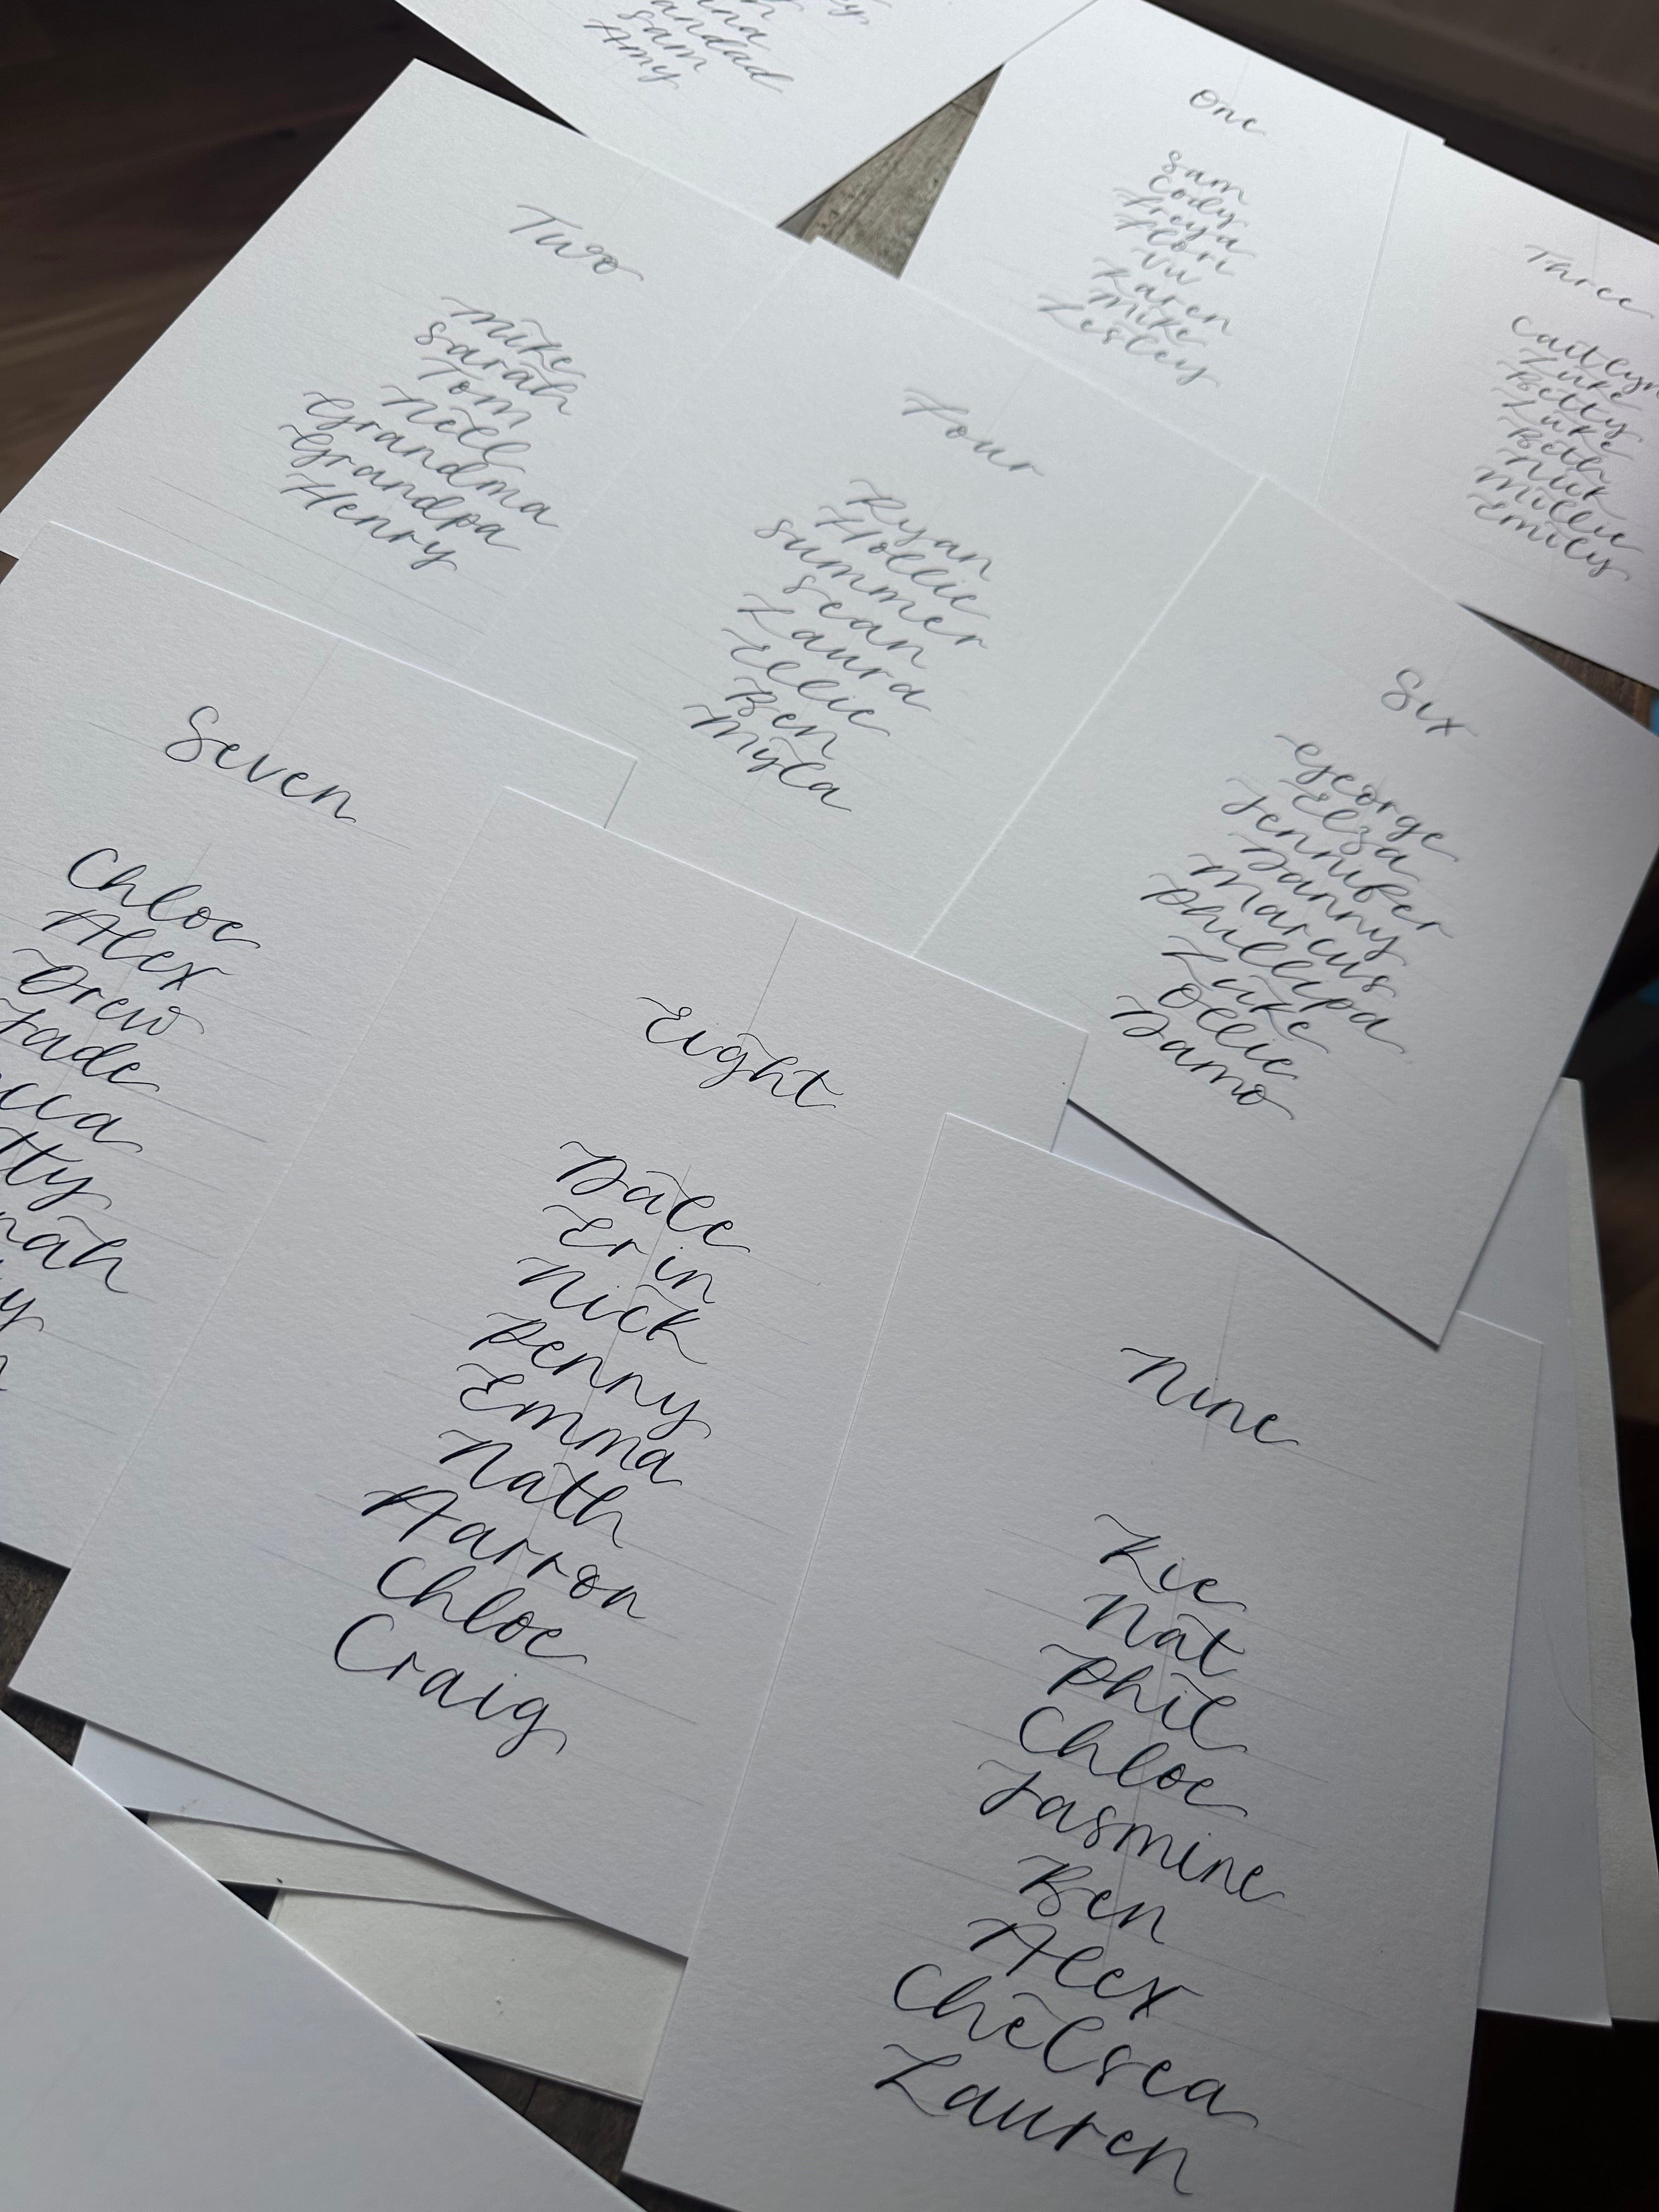 Sam
Amy
One
Sam
Cody
Freya
Flori
Viv
Karen
Mike
Lesley
Two
Mike
Sarah
Tom
Nell
Grandma
Grandpa
Henry
Three
Caitlyn
Luke
Betty
Luke
Beth
Nick
Millie
Emily
Four
Ryan
Hollie
Summer
Sean
Laura
Ellie
Ben
Myla
Six
George
Elza
Jennifer
Danny
Marcus
Phillipa
Luke
Ollie
Damo
Seven
Chloe
Alex
Drew
Jade
Eight
Dale
Erin
Nick
Penny
Emma
Nath
Aarron
Chloe
Craig
Nine
Kie
Nat
Phil
Chloe
Jasmine
Ben
Alex
Chelsea
Lauren